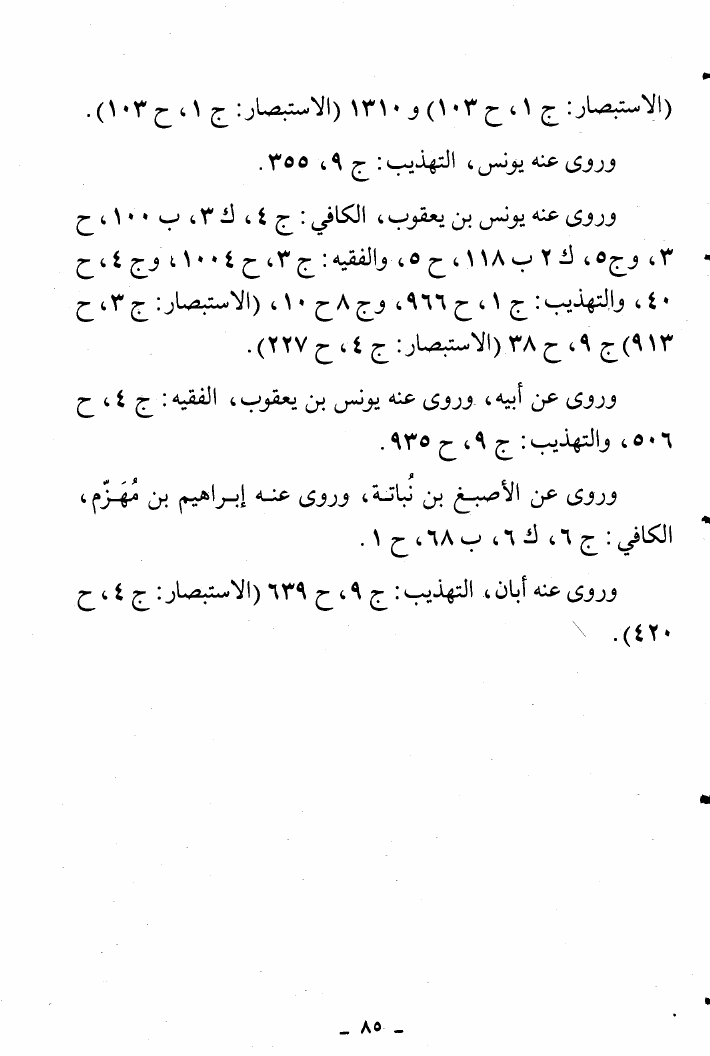 (الاستبصار: ج ١، ح ١٠٣) و ١٣١٠ (الاستبصار: ج ١، ح ١٠٣).
وروى عنه يونس، التهذيب: ج ٩، ٣٥٥.
وروى عنه يونس بن يعقوب، الكافي: ج ٤، ك ٣، ب ١٠٠، ح
٣، وج٥، ك ٢ ب ١١٨، ح ٥، والفقيه: ج ٣، ح ١٠٠٤، وج ٤، ح
٤٠، والتهذيب: ج ١، ح ٩٦٦، وج ٨ ح ١٠، (الاستبصار: ج ٣، ح
٩١٣) ج ٩، ح ٣٨ (الاستبصار: ج ٤، ح ٢٢٧).
وروى عن أبيه، وروى عنه يونس بن يعقوب، الفقيه: ج ٤، ح
٥٠٦، والتهذيب: ج ٩، ح ٩٣٥.
وروى عن الأصبـغ بن نُباتـة، وروى عنـه إبـراهيم بن مُهَـزّم،
الكافي: ج ٦، ك ٦، ب ٦٨، ح ١.
وروى عنه أبان، التهذيب: ج ٩، ح ٦٣٩ (الاستبصار: ج ٤، ح
٤٢٠).
ـ ٨٥ ـ